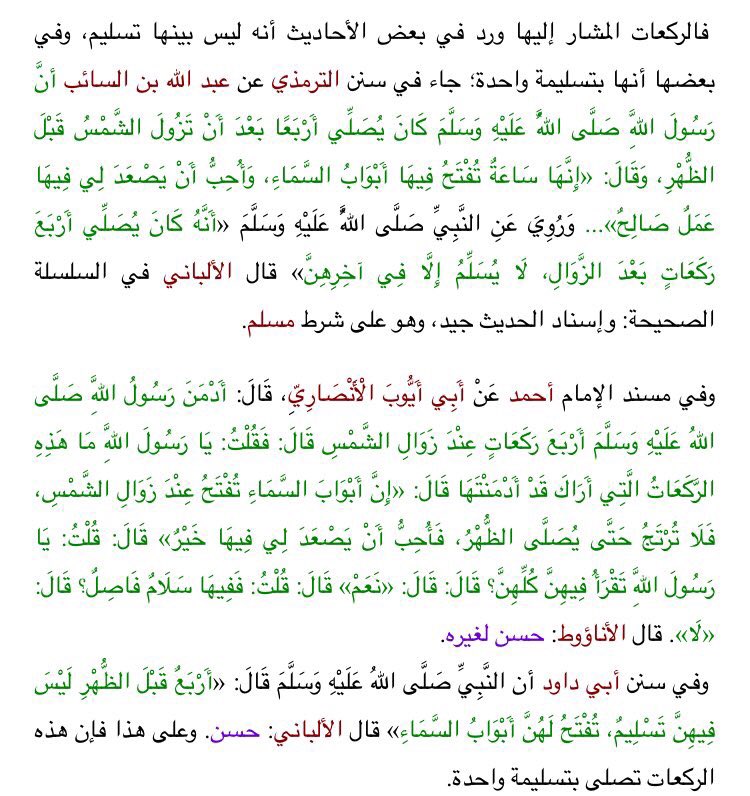 فالركعات المشار إليها ورد في بعض الأحاديث أنه ليس بينها تسليم، وفي
بعضها أنها بتسليمة واحدة؛ جاء في سنن الترمذي عن عبد الله بن السائب أنَّ
رَسُولَ اللهِ صَلَّى اللهُ عَلَيْهِ وَسَلَّمَ كَانَ يُصَلِّي أَرْبَعًا بَعْدَ أَنْ تَزُولَ الشَّمْسُ قَبْلَ
الظُّهْرِ، وَقَالَ: «إِنَّهَا سَاعَةٌ تُفْتَحُ فِيهَا أَبْوَابُ السَّمَاءِ، وَأُحِبُّ أَنْ يَصْعَدَ لِي فِيهَا
عَمَلٌ صَالِحٌ»... وَرُوِيَ عَنِ النَّبِيِّ صَلَّى اللهُ عَلَيْهِ وَسَلَّمَ «أَنَّهُ كَانَ يُصَلِّي أَرْبَعَ
رَكَعَاتٍ بَعْدَ الزَّوَالِ، لَا يُسَلِّمُ إِلَّا فِي آخِرِهِنَّ» قال الألباني في السلسلة
الصحيحة: وإسناد الحديث جيد، وهو على شرط مسلم.
وفي مسند الإمام أحمد عَنْ أَبِي أَيُّوبَ الْأَنْصَارِيِّ، قَالَ: أَدْمَنَ رَسُولُ اللهِ صَلَّى
اللهُ عَلَيْهِ وَسَلَّمَ أَرْبَعَ رَكَعَاتٍ عِنْدَ زَوَالِ الشَّمْسِ قَالَ: فَقُلْتُ: يَا رَسُولَ اللهِ مَا هَذِهِ
الرَّكَعَاتُ الَّتِي أَرَاكَ قَدْ أَدْمَنْتَهَا قَالَ: «إِنَّ أَبْوَابَ السَّمَاءِ تُفْتَحُ عِنْدَ زَوَالِ الشَّمْسِ،
فَلَا تُرْتَجُ حَتَّى يُصَلَّى الظُّهْرُ، فَأُحِبُّ أَنْ يَصْعَدَ لِي فِيهَا خَيْرٌ» قَالَ: قُلْتُ: يَا
رَسُولَ اللهِ تَقْرَأُ فِيهِنَّ كُلِّهِنَّ؟ قَالَ: قَالَ: «نَعَمْ» قَالَ: قُلْتُ: فَفِيهَا سَلَامٌ فَاصِلٌ؟ قَالَ:
«لَا». قال الأناؤوط: حسن لغيره.
وفي سنن أبي داود أن النَّبِيِّ صَلَّى اللهُ عَلَيْهِ وَسَلَّمَ قَالَ: «أَرْبَعٌ قَبْلَ الظُّهْرِ لَيْسَ
فِيهِنَّ تَسْلِيمٌ، تُفْتَحُ لَهُنَّ أَبْوَابُ السَّمَاءِ» قال الألباني: حسن. وعلى هذا فإن هذه
الركعات تصلى بتسليمة واحدة.